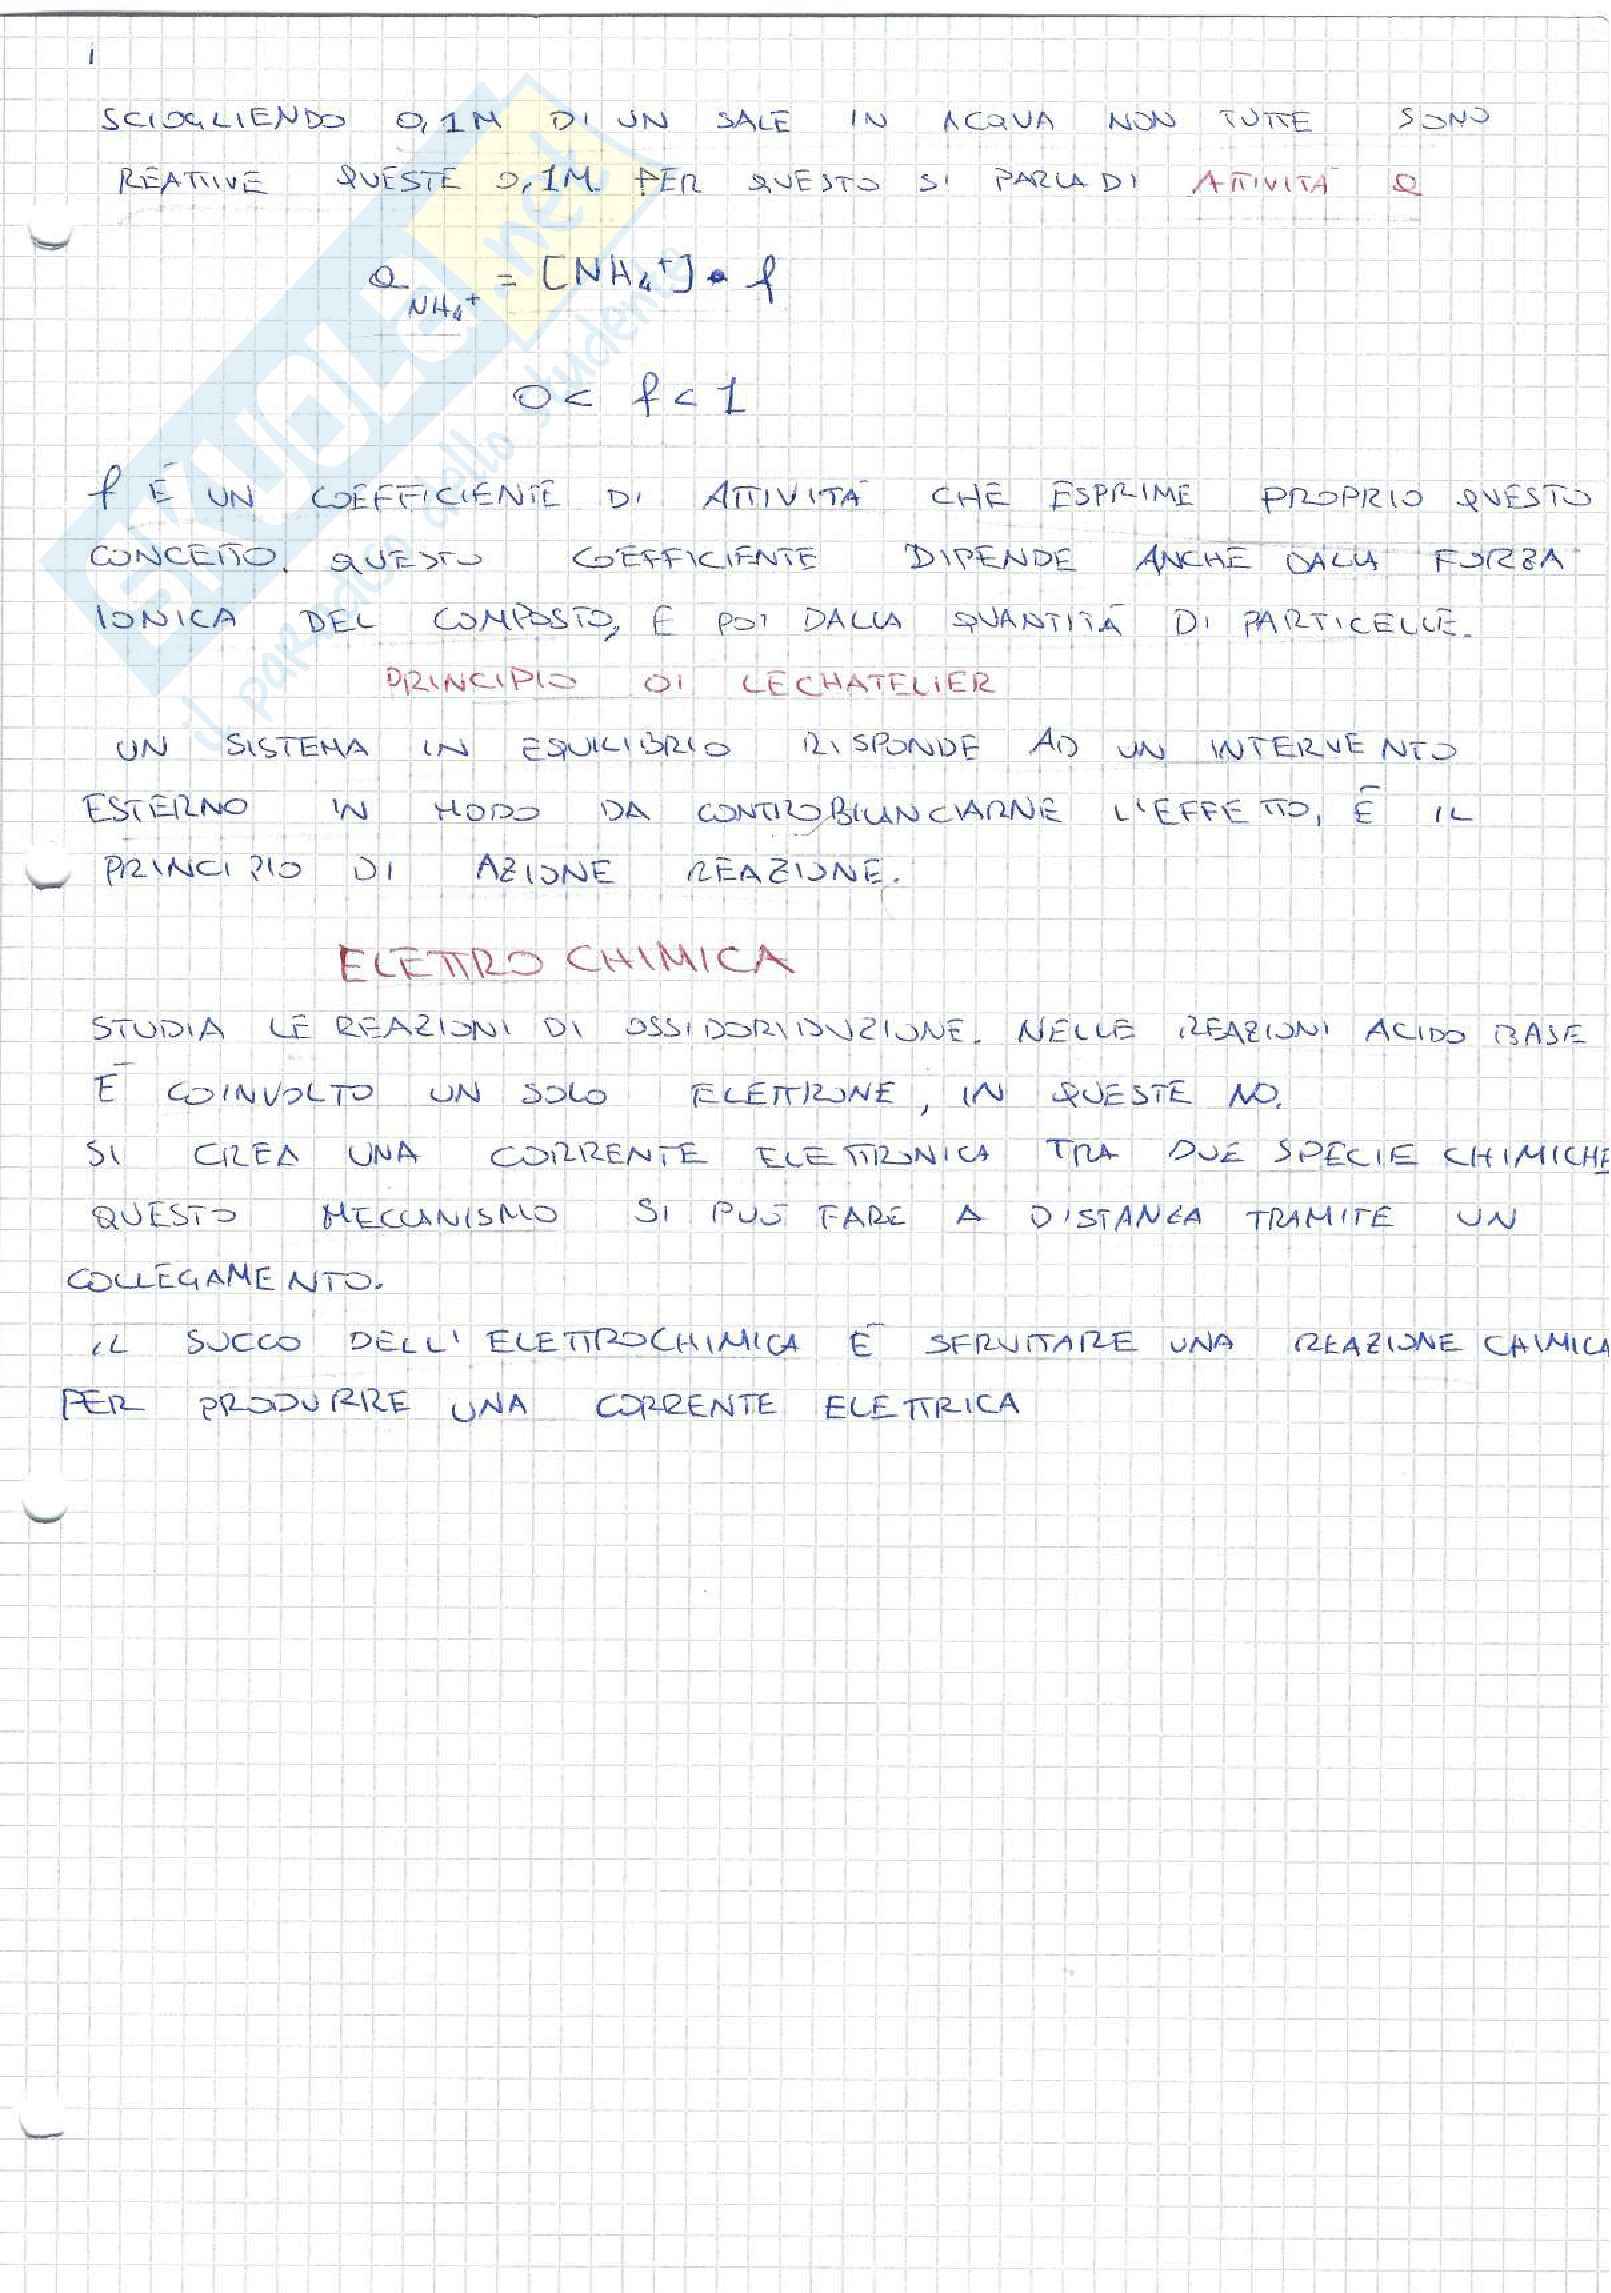 SCIOGLIENDO 0,1M DI UN SALE IN ACQUA NON TUTTE SONO
REATTIVE QUESTE 0,1M. PER QUESTO SI PARLA DI ATTIVITÀ a
a NH₄⁺ = [NH₄⁺] • f
0 < f < 1
f È UN COEFFICIENTE DI ATTIVITÀ CHE ESPRIME PROPRIO QUESTO
CONCETTO. QUESTO COEFFICIENTE DIPENDE ANCHE DALLA FORZA
IONICA DEL COMPOSTO, E POI DALLA QUANTITÀ DI PARTICELLE.
PRINCIPIO DI LECHATELIER
UN SISTEMA IN EQUILIBRIO RISPONDE AD UN INTERVENTO
ESTERNO IN MODO DA CONTROBILANCIARNE L'EFFETTO, È IL
PRINCIPIO DI AZIONE REAZIONE.
ELETTROCHIMICA
STUDIA LE REAZIONI DI OSSIDORIDUZIONE. NELLE REAZIONI ACIDO BASE
È COINVOLTO UN SOLO ELETTRONE, IN QUESTE NO.
SI CREA UNA CORRENTE ELETTRONICA TRA DUE SPECIE CHIMICHE
QUESTO MECCANISMO SI PUÒ FARE A DISTANZA TRAMITE UN
COLLEGAMENTO.
IL SUCCO DELL'ELETTROCHIMICA È SFRUTTARE UNA REAZIONE CHIMICA
PER PRODURRE UNA CORRENTE ELETTRICA
SKUOLA.net
il paradiso dello studente